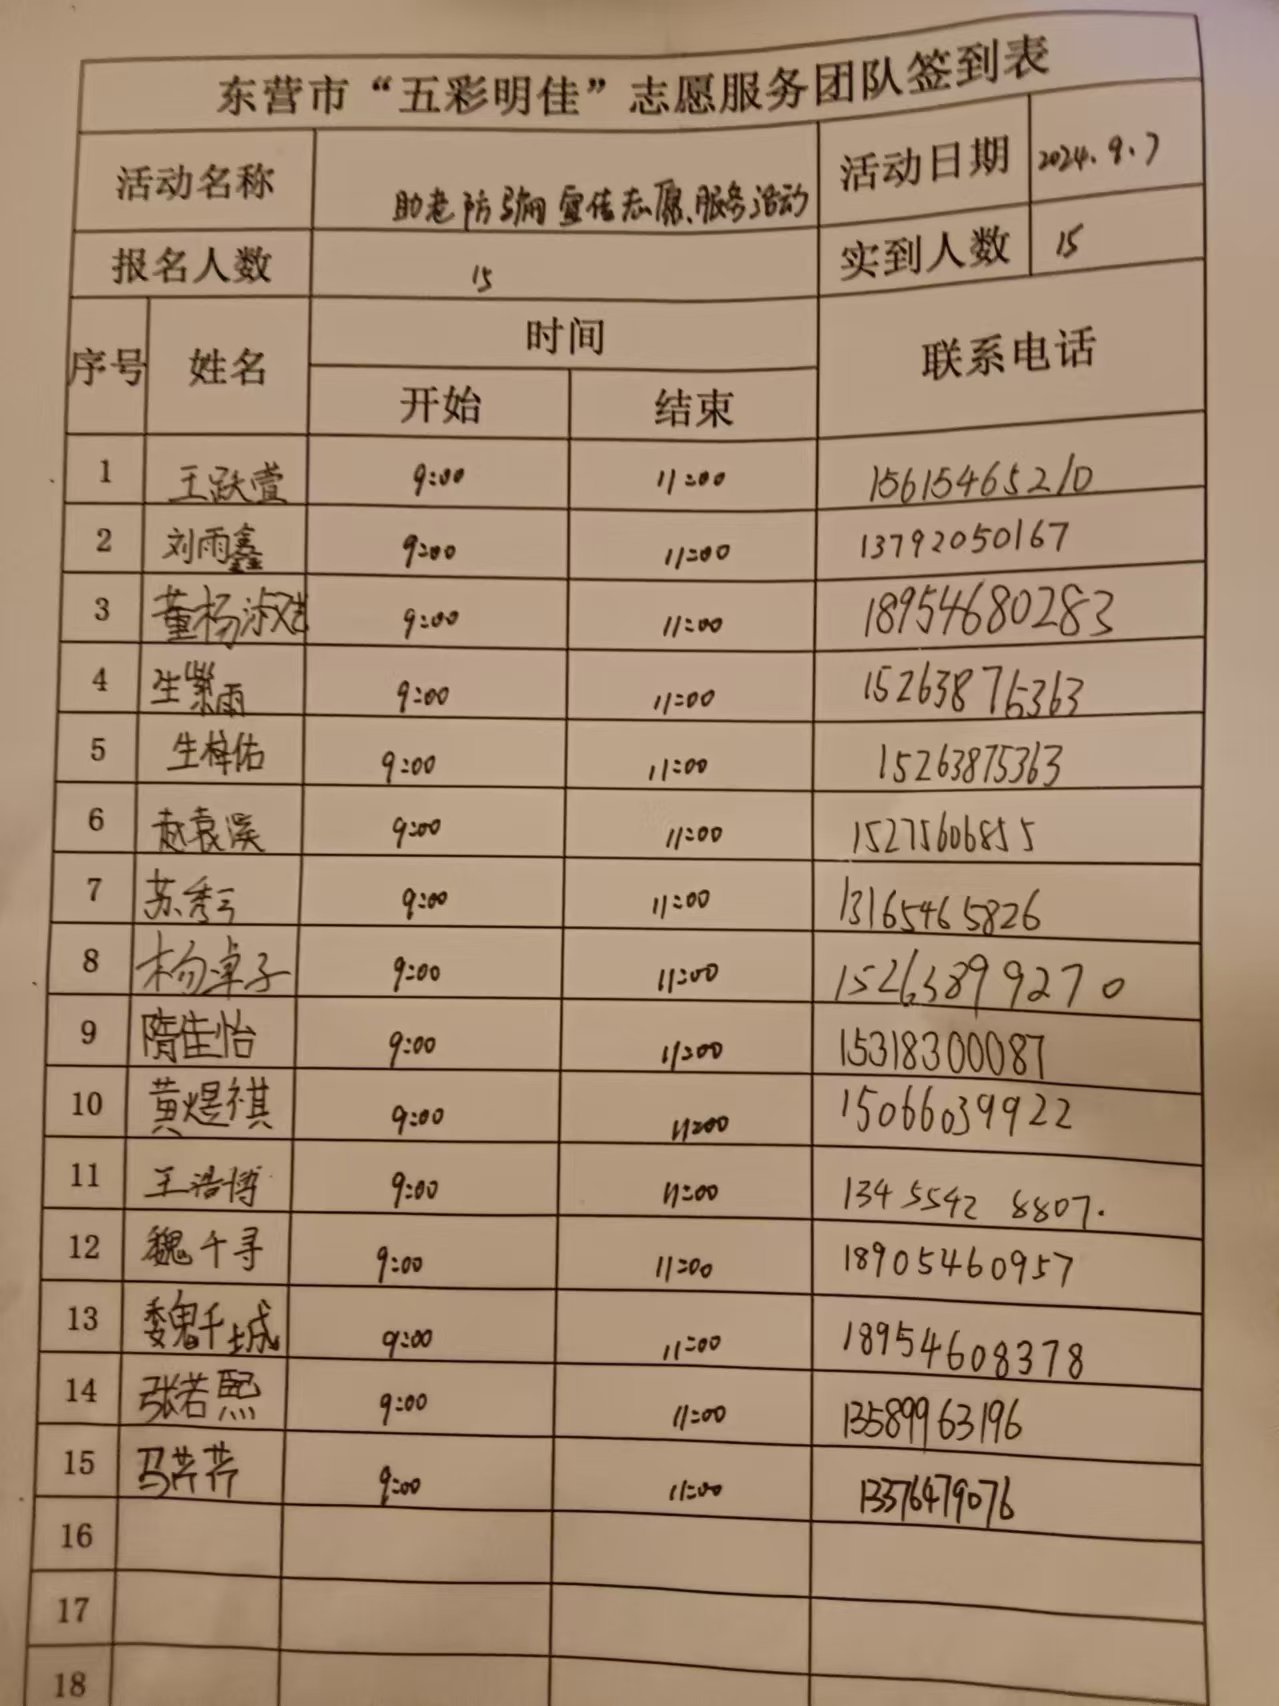 东营市“五彩明佳”志愿服务团队签到表
活动名称 助老防骗宣传志愿服务活动 活动日期 2024.9.7
报名人数 15 实到人数 15
序号 姓名 时间 联系电话
开始 结束
1 王跃萱 9:00 11:00 15615465210
2 刘雨鑫 9:00 11:00 13792050167
3 董杨淑 9:00 11:00 18954680283
4 生紫雨 9:00 11:00 15263875363
5 生梓佑 9:00 11:00 15263875363
6 赵袁溪 9:00 11:00 15275606855
7 苏秀 9:00 11:00 13165465826
8 杨卓子 9:00 11:00 15263899270
9 隋佳怡 9:00 11:00 15318300087
10 黄煜祺 9:00 11:00 15066039922
11 王浩博 9:00 11:00 1345542 8807.
12 魏千寻 9:00 11:00 18905460957
13 魏千城 9:00 11:00 18954608378
14 张若熙 9:00 11:00 13589963196
15 马芹芹 9:00 11:00 13376479076
16
17
18